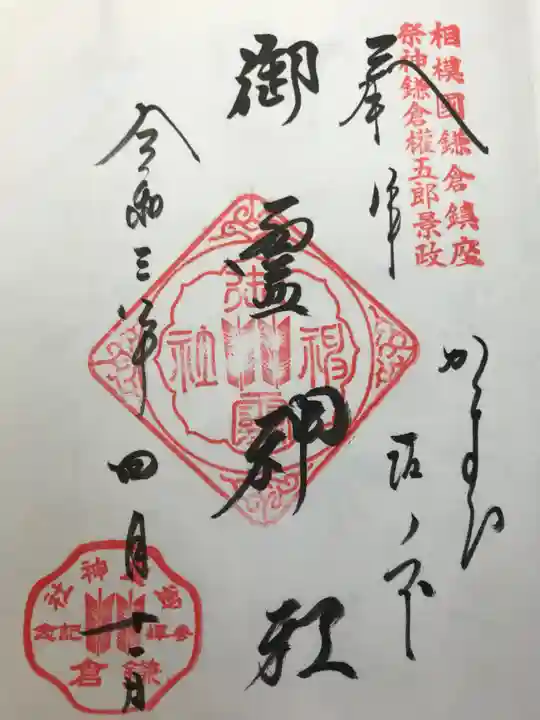 相模國鎌倉鎮座
祭神鎌倉權五郎景政
奉拝
かまくら
坂ノ下
御霊神社
御霊神社
令和三年四月十一日
御霊神社
参拝記念
鎌倉